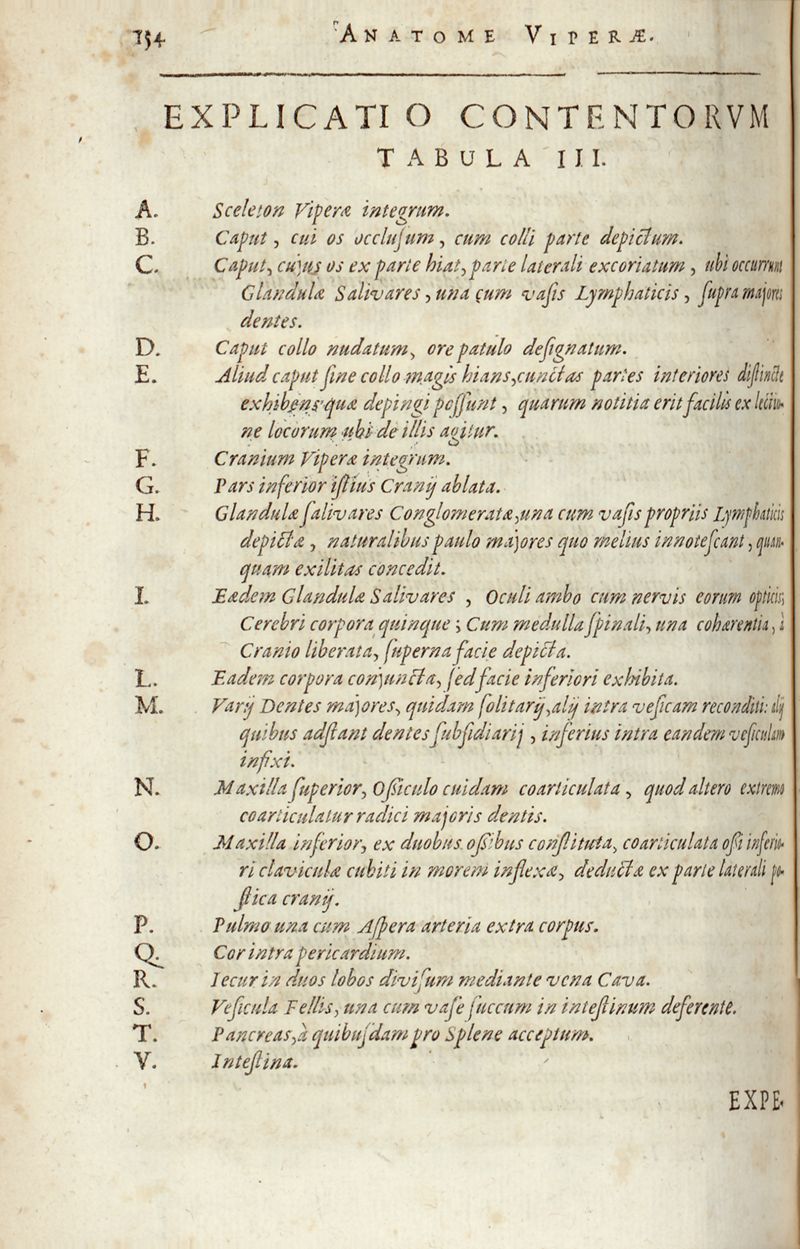 154 ANATOME VIPERÆ.
EXPLICATIO CONTENTORVM
TABULA III.
A. Sceleton Viperæ integrum.
B. Caput, cui os occlusum, cum colli parte depictum.
C. Caput, cujus os ex parte hiat, parte laterali excoriatum, ubi occurrunt
Glandulæ Salivares, una cum vasis Lymphaticis, supra majores
dentes.
D. Caput collo nudatum, ore patulo designatum.
E. Aliud caput sine collo magis hians, cunctas partes interiores distincte
exhibens quæ depingi possunt, quarum notitia erit facilis ex lectio-
ne locorum ubi de illis agitur.
F. Cranium Viperæ integrum.
G. Pars inferior istius Cranij ablata.
H. Glandulæ salivares Conglomeratæ, una cum vasis propriis Lymphaticis
depictæ, naturalibus paulo majores quo melius innotescant, quan-
quam exilitas concedit.
I. Eædem Glandulæ Salivares, Oculi ambo cum nervis eorum opticis;
Cerebri corpora quinque; Cum medulla spinali, una cohærentia, à
Cranio liberata, superna facie depicta.
L. Eadem corpora conjuncta, sed facie inferiori exhibita.
M. Varij Dentes majores, quidam solitarij, alij intra vesicam reconditi: alij
quibus adstant dentes subsidiarij, inferius intra eandem vesiculam
infixi.
N. Maxilla superior, Ossiculo cuidam coarticulata, quod altero extremo
coarticulatur radici majoris dentis.
O. Maxilla inferior, ex duobus ossibus constituta, coarticulata ossi inferio-
ri claviculæ cubiti in morem inflexæ, deductæ ex parte laterali po-
stica cranij.
P. Pulmo una cum Aspera arteria extra corpus.
Q. Cor intra pericardium.
R. Iecur in duos lobos divisum mediante vena Cava.
S. Vesicula Fellis, una cum vase succum in intestinum deferente.
T. Pancreas, à quibusdam pro Splene acceptum.
V. Intestina.
EXPE-